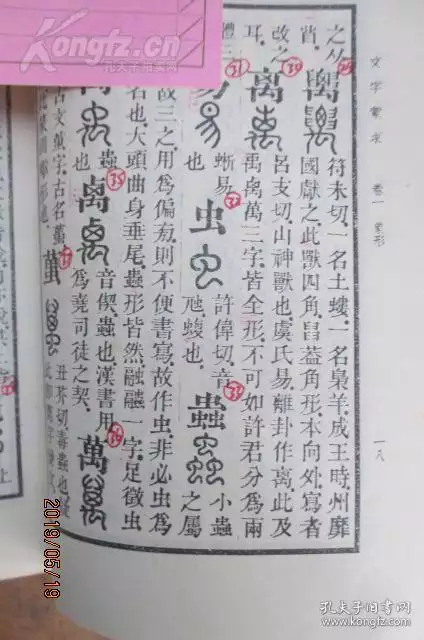 文字蒙求 卷一 象形 一八
之从
肖
符未切,一名土螻,一名梟羊,成王時,州靡
國獻之此獸四角,蓋角形,本向外,寫者
改之
耳
离
呂支切,山神獸也,虞氏易離卦作离,此及
禹禼萬三字,皆全形,不可如許君分爲兩
體三
易
蜥易
也
虫
許偉切,音
虺,蝮也
蟲
小蟲
之屬
故三之,用爲偏旁,則不便書寫,故作虫,非必虫爲
名也,大頭曲身垂尾,蟲形皆然,融融一字,足徵虫
禹
蟲
也
禼
音偰,蟲也,漢書用
爲堯司徒之契
萬
古文萬字,古名蠆
蠆
丑芥切,毒蟲也
29
30
31
32
33
35
36
37
上
Kongfz.com
孔夫子旧书网
2019/05/19
孔夫子旧书网
www.kongfz.com